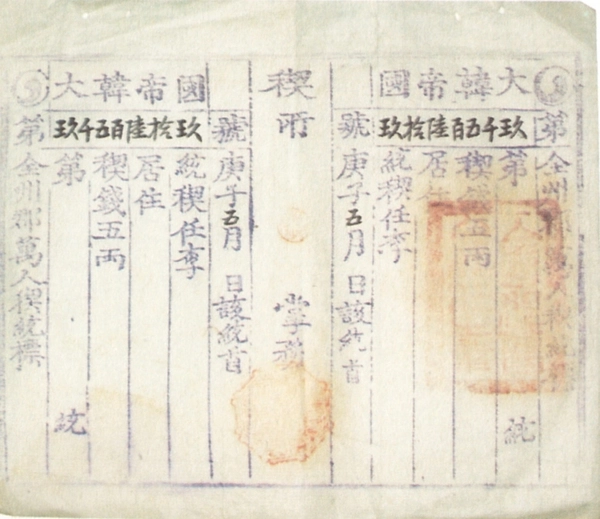 大韓帝國
玖千五百陸拾玖
第全州郡萬人稧統標
第 統
稧錢五兩
居住
統稧任李
號庚子五月 日該統首
稧所 掌務
大韓帝國
玖千五百陸拾玖
號庚子五月 日該統首
統稧任李
居住
稧錢五兩
第 統
第全州郡萬人稧統標